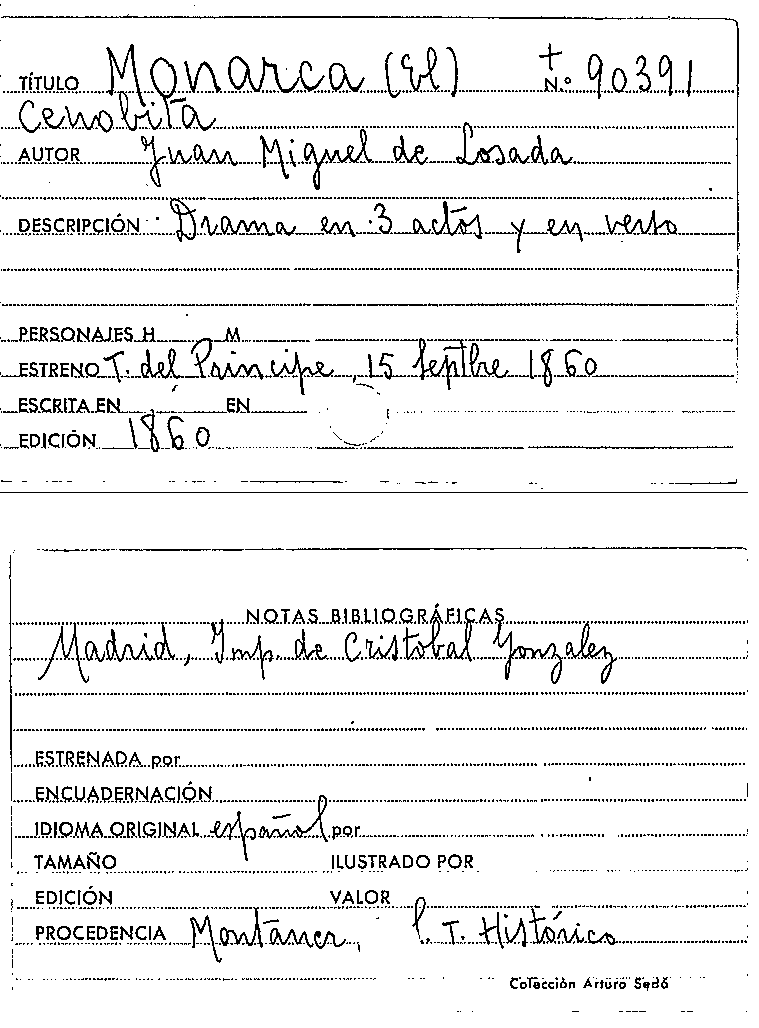 TÍTULO Monarca (El) + N.º 90391
Cenobita
AUTOR Juan Miguel de Losada
DESCRIPCIÓN Drama en 3 actos y en verso
PERSONAJES H M
ESTRENO T. del Principe, 15 Septbre 1860
ESCRITA EN EN
EDICIÓN 1860
NOTAS BIBLIOGRÁFICAS
Madrid, Imp. de Cristobal Gonzalez
ESTRENADA por
ENCUADERNACIÓN
IDIOMA ORIGINAL español por
TAMAÑO ILUSTRADO POR
EDICIÓN VALOR
PROCEDENCIA Montaner, T. Histórico
Colección Arturo Sedó